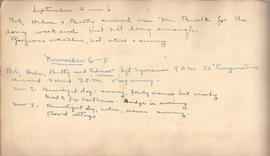 September 4 – 6
Bob, Helen & Betty arrived via M. for the
long week end, but not long enough.
Gorgeous weather, hot, still & sunny.
November 6-8
Bob, Helen, Betty and left Syracuse 9 A.M. 72° temperature
arrived Island
Nov 7. Beautiful day: sunny, fairly warm but windy
Bridge in evening
Nov 8. Beautiful day, calm, warm sunny.
Closed cottage